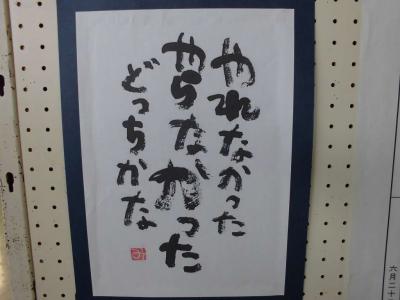 やれなかった
やらなかった
どっちかな
六月二十